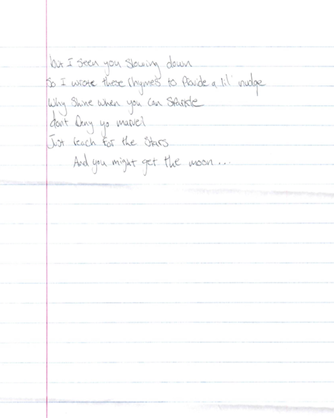 but I seen you slowing down
So I wrote these rhymes to Provide a lil' nudge
Why Shine when you Can Sparkle
dont Deny yo marvel
Just reach for the Stars
And you might get the moon...